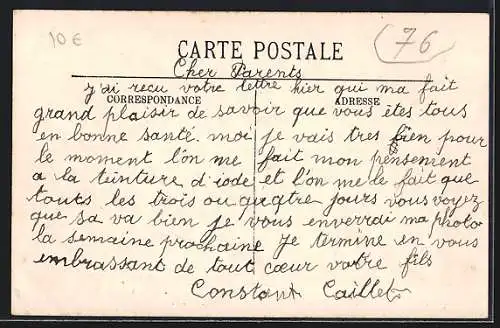 10 €
76
CARTE POSTALE
Cher Parents
j'ai reçu votre lettre hier qui ma fait
CORRESPONDANCE
ADRESSE
grand plaisir de savoir que vous êtes tous
en bonne santé. moi je vais tres bien pour
le moment l'on me fait mon pensement
a la teinture d'iode et l'on me le fait que
touts les trois ou quatre jours vous voyez
que sa va bien je vous enverrai ma photo
la semaine prochaine Je termine en vous
embrassant de tout cœur votre fils
Constant Caillet